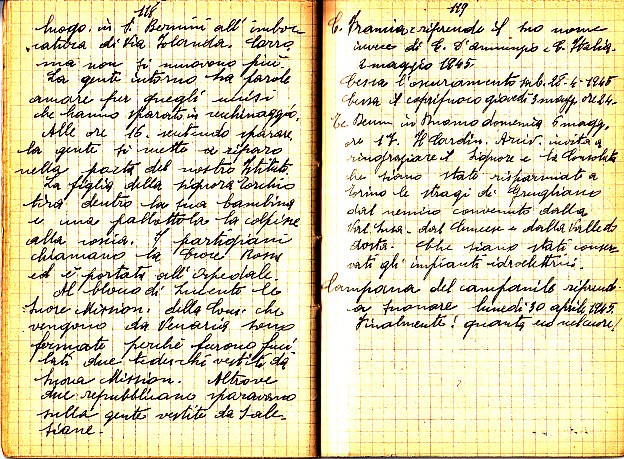 118
luogo, in P. Bernini all' imboc-
catura di Via Jolanda. Corro,
ma non si muovono più.
La gente intorno ha parole
amare per quegli uccisi
che hanno sparato in
Alle ore 16. sentendo sparare,
la gente si mette a riparo
nella porta del nostro Istituto.
La figlia della signora
tira dentro la sua bambina
e una pallottola la colpisce
alla coscia. I partigiani
chiamano la Croce Rossa
ed è portata all' Ospedale.
Al blocco di Lucento le
Suore Mission. della Cons. che
vengono da Venaria sono
fermate perchè furono fuci
lati due tedeschi vestiti da
Suora Mission. Altrove
due repubblicano sparavano
sulla gente vestite da Sale-
siane.
119
C. Francia riprende il suo nome
invece di C. D'annunzio e C. Italia.
2 maggio 1945.
Cessa l'oscuramento sab. 28-4-1945
Cessa il coprifuoco giovedì 3 magg. ore 24.
Te Deum in Duomo domenica 6 magg.
ore 17. Il Cardin. Arciv. invita a
ringraziare il Signore e la Consolata
che siano stati risparmiati a
Torino le stragi di Grugliasco
dal nemico convenuto dalla
Val Susa, dal Cuneese e dalla Valle d'A
dosta. Che siano stati conser-
vati gli impianti idroelettrici.
Campana del campanile riprende
a suonare lunedì 30 aprile 1945.
Finalmente! quanta eco nel cuore!